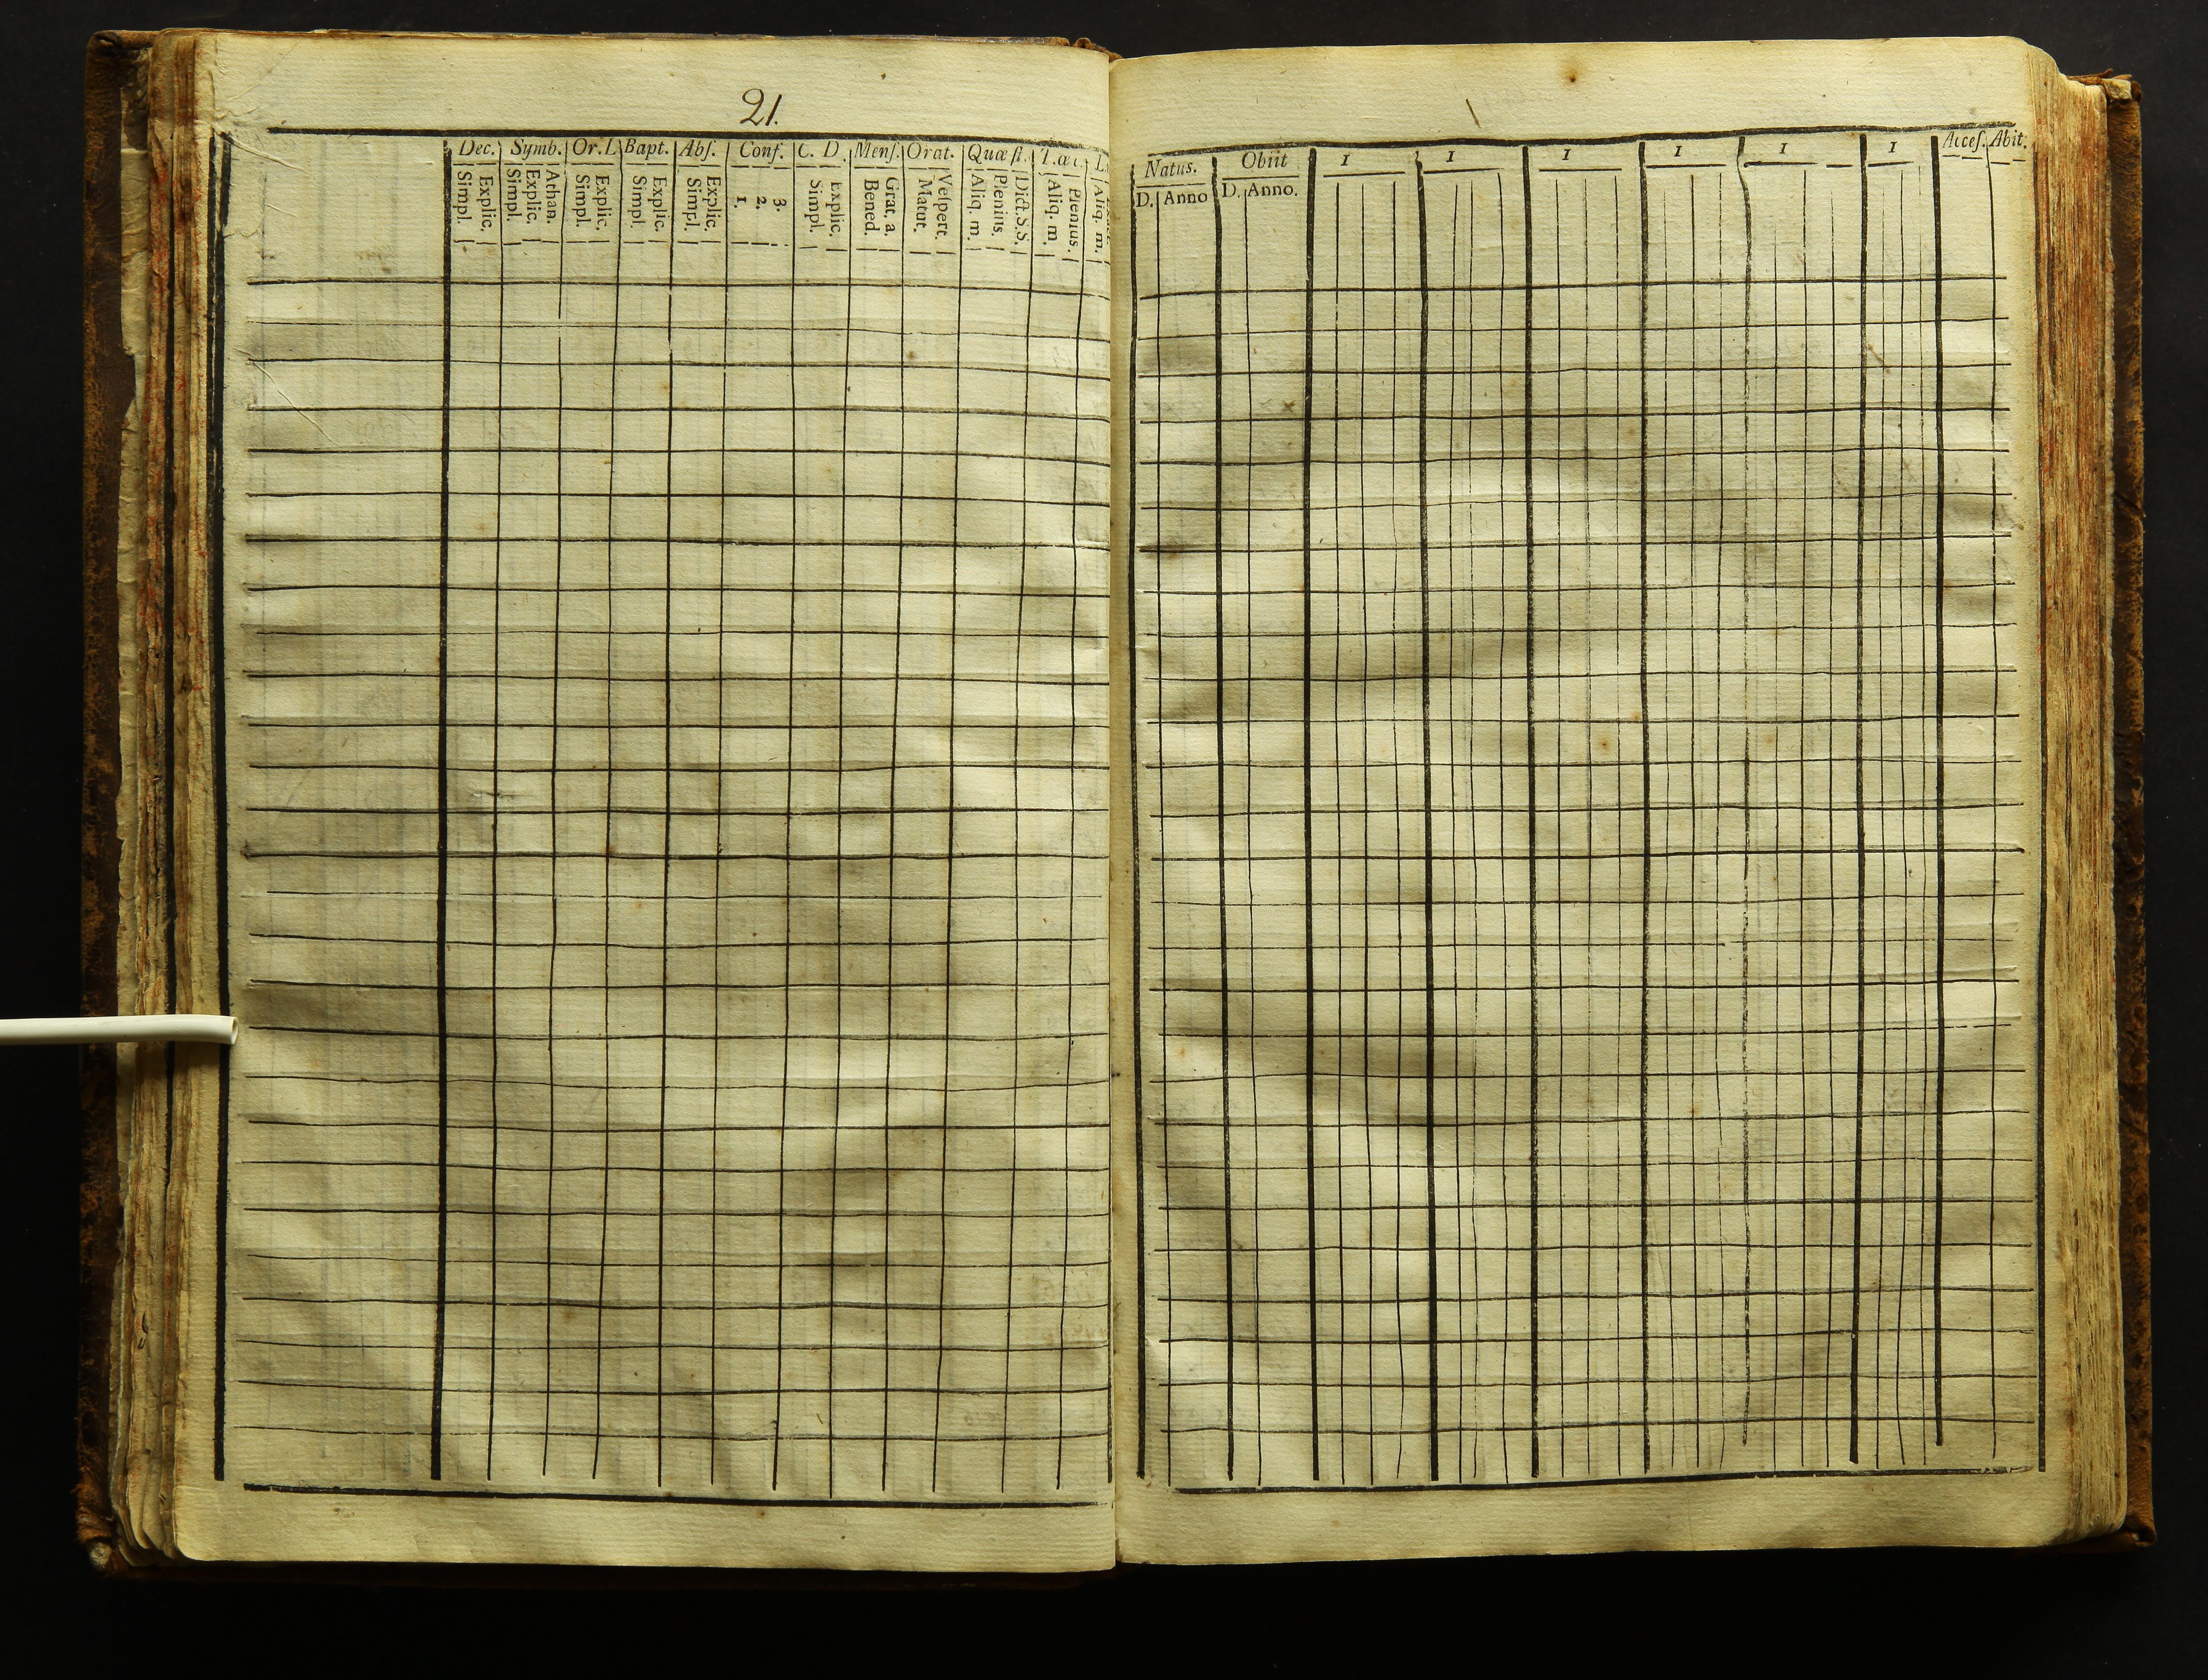 21.
Dec. Symb. Or. D Bapt. Abſ. Conf. C. D. Menſ. Orat. Quæſt. L.
Simpl. Explic. Simpl. Explic. Athan. Simpl. Explic. Simpl. Explic. Simpl. Explic. 1. 2. 3. Simpl. Explic. Bened. Grat. a. Matut. Veſpert. Aliq. m. Plenius. Dict. S.S. Aliq. m. Plenius. Aliq. m.
Natus. Obiit 1 1 1 1 1 1 Acceſ. Abit.
D. Anno D. Anno.